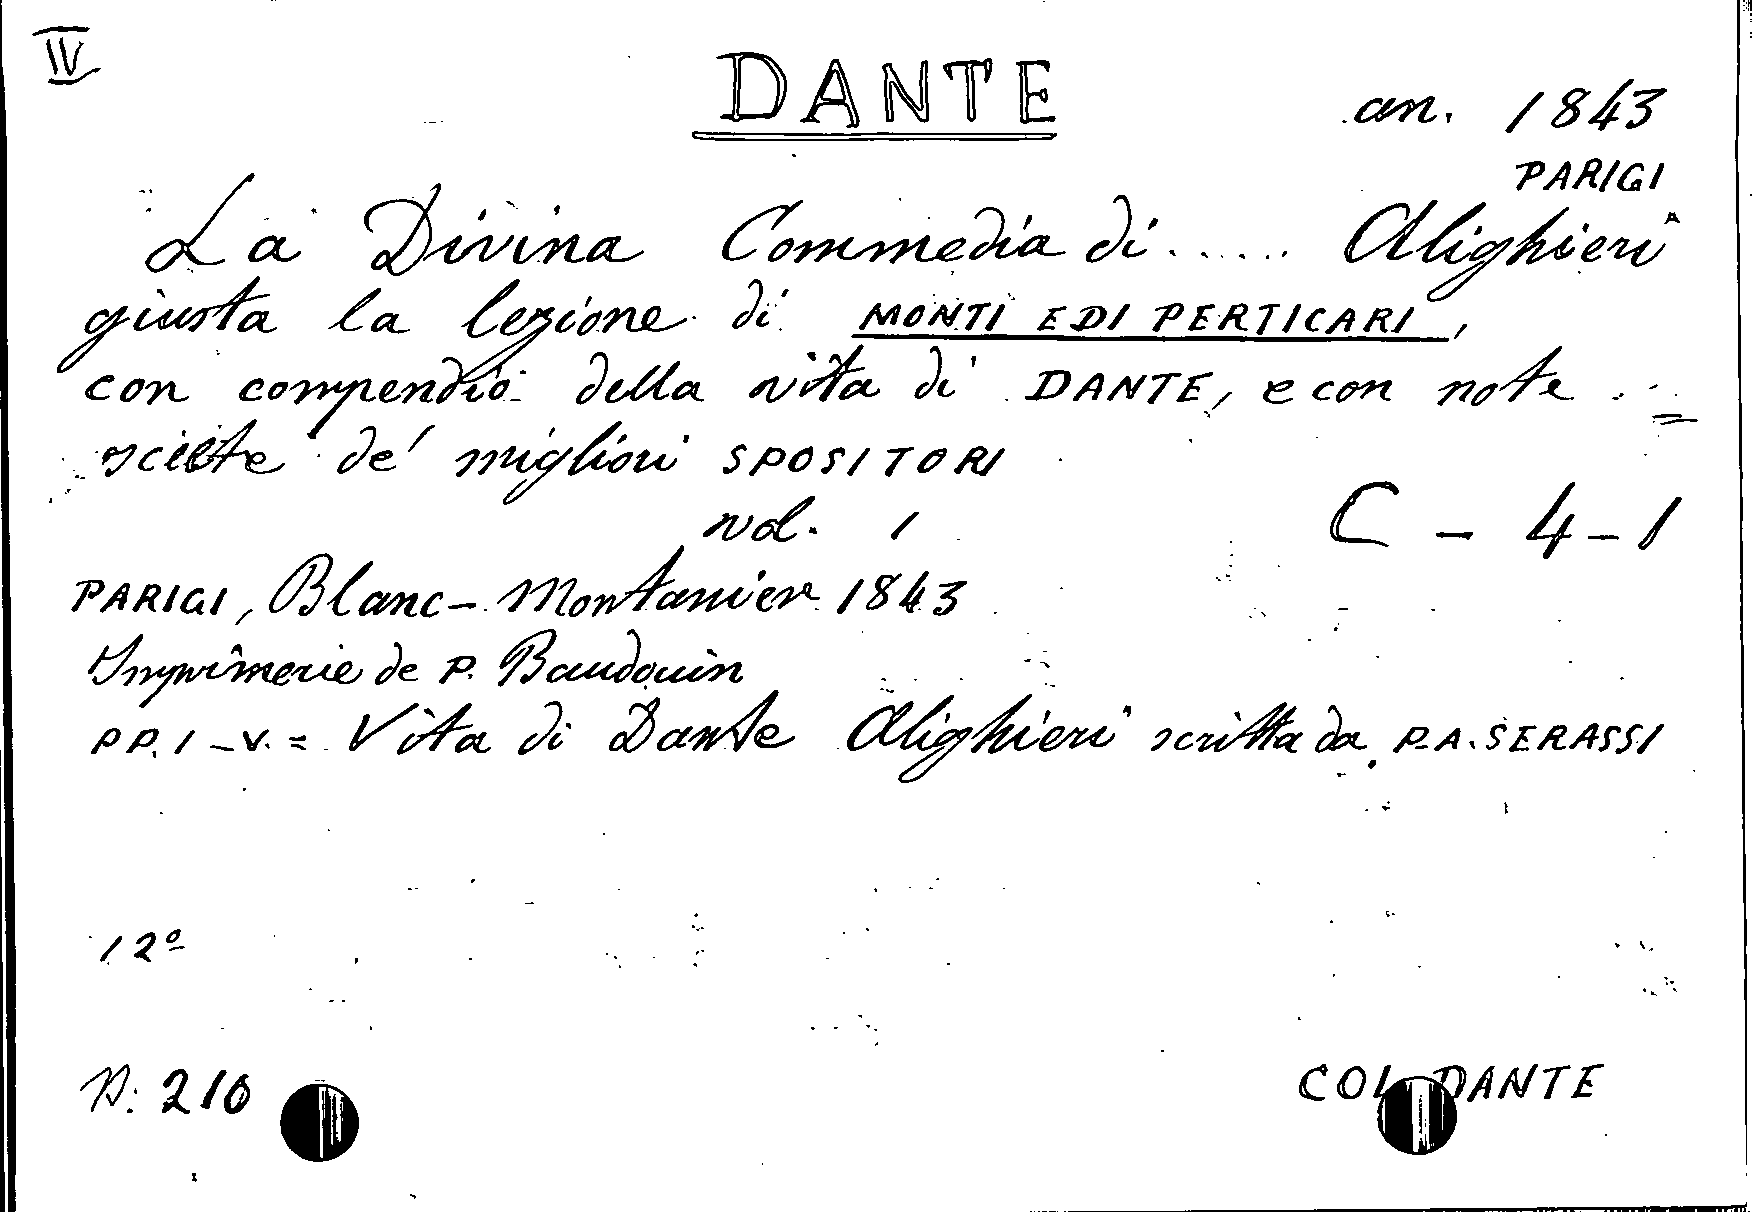 IV
DANTE
an. 1843
PARIGI
La Divina Commedia di ..... Alighieri
giusta la lezione di MONTI E DI PERTICARI,
con compendio della vita di DANTE, e con note
scielte de' migliori SPOSITORI
vol. 1
C - 4 - 1
PARIGI, Blanc - Montanier 1843
Imprimerie de P. Baudouin
PP. I - V. = Vita di Dante Alighieri scritta da P.A. SERASSI
12º
N: 210
COL DANTE